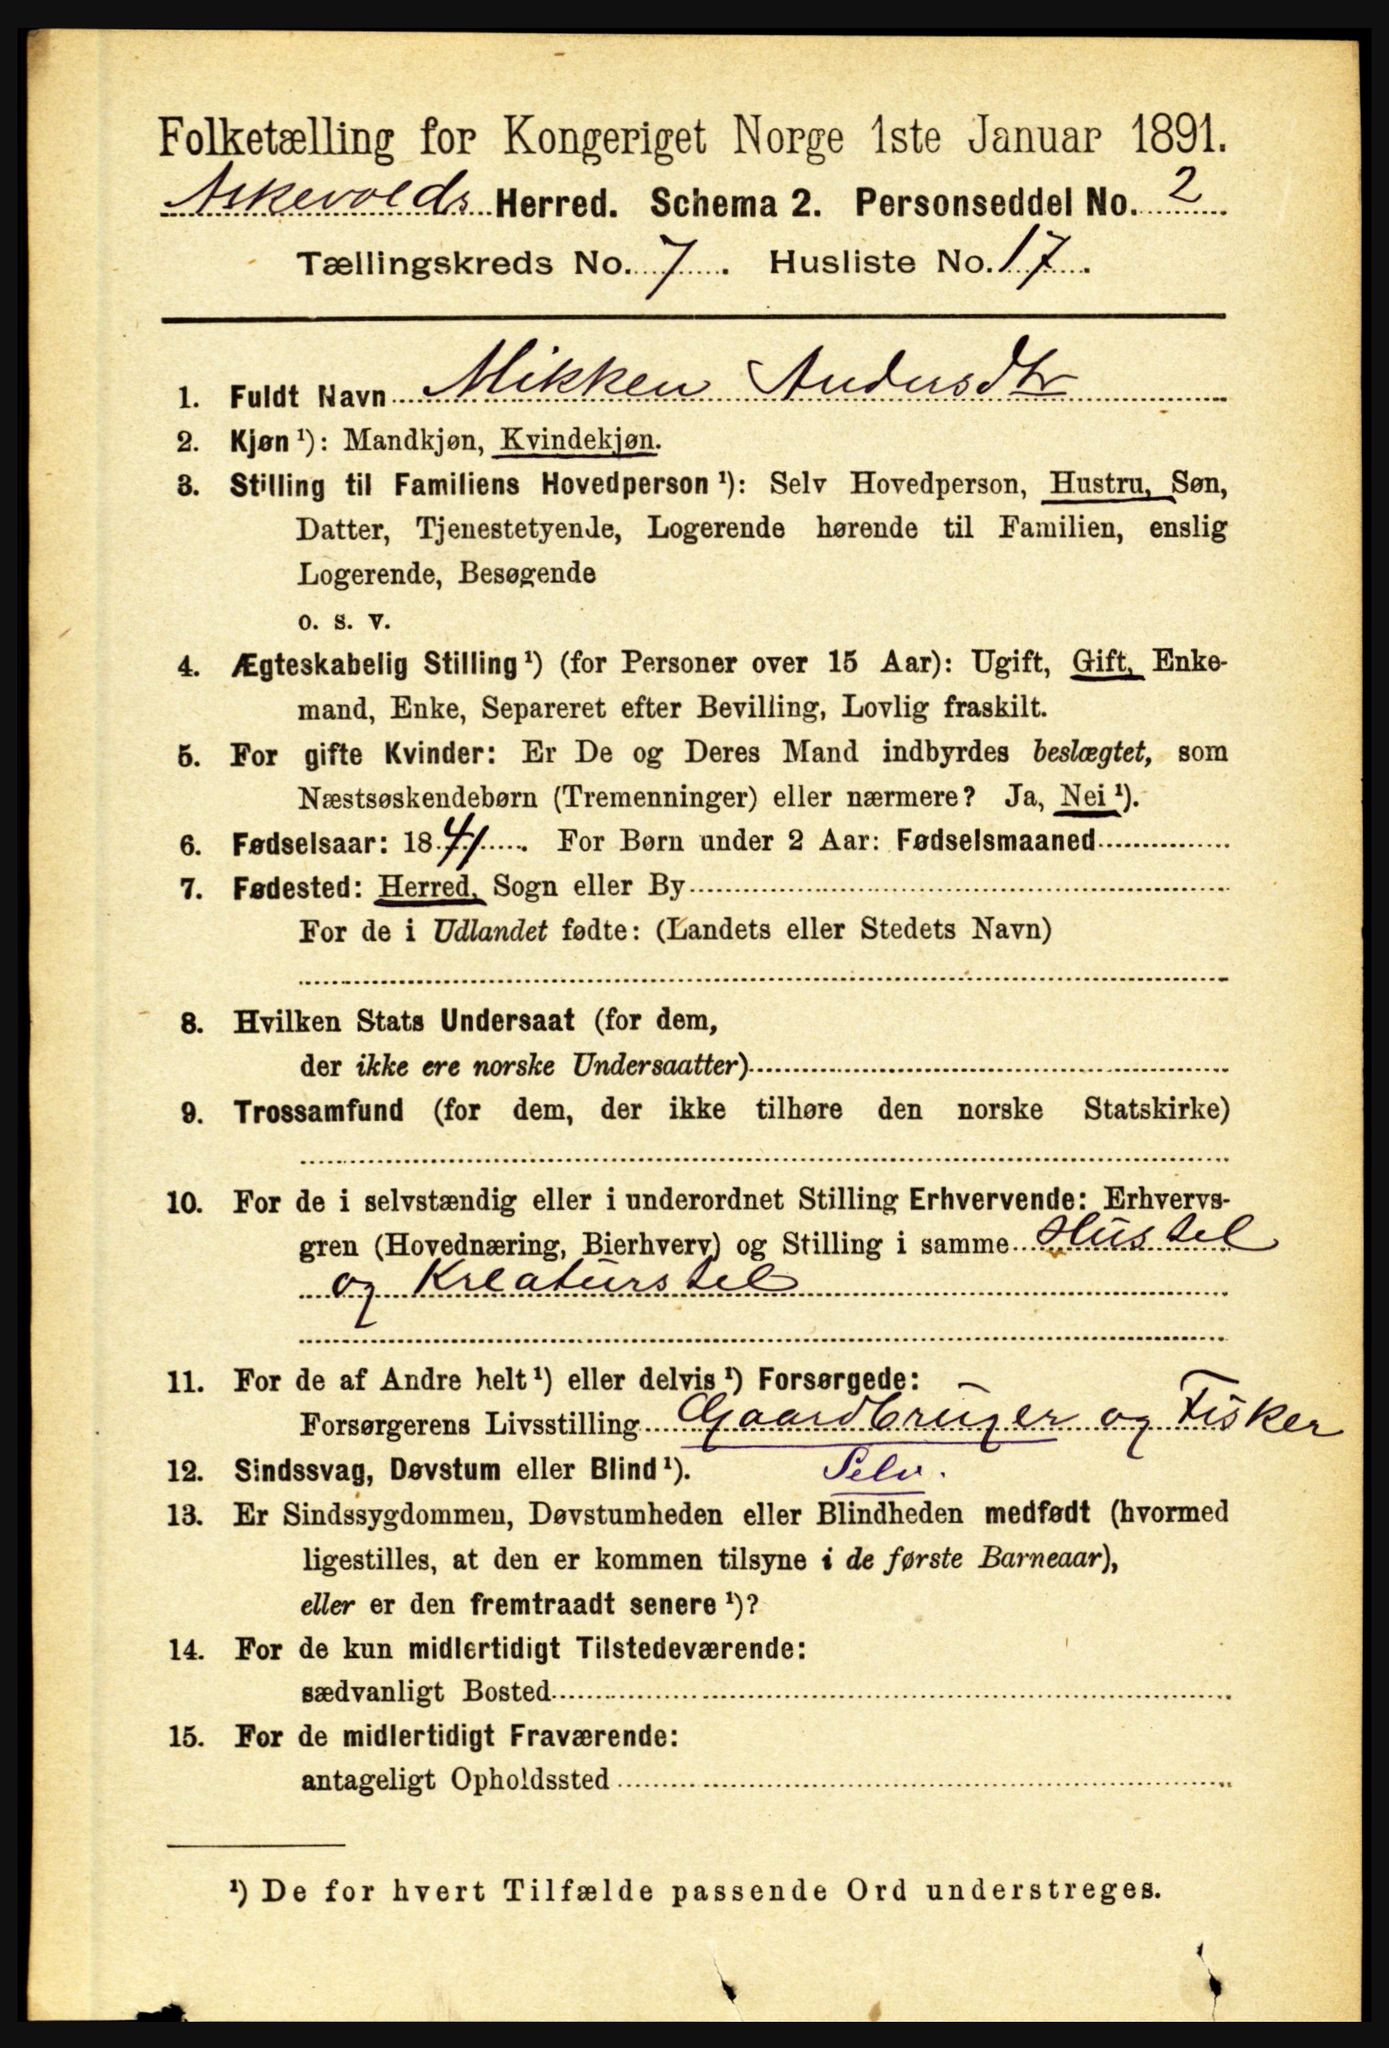 Folketælling for Kongeriget Norge 1ste Januar 1891.
Askevolds Herred. Schema 2. Personseddel No. 2
Tællingskreds No. 7. Husliste No. 17.
1. Fuldt Navn Mikken Andersdtr
2. Kjøn ¹): Mandkjøn, Kvindekjøn.
3. Stilling til Familiens Hovedperson ¹): Selv Hovedperson, Hustru, Søn,
Datter, Tjenestetyende, Logerende hørende til Familien, enslig
Logerende, Besøgende
o. s. v.
4. Ægteskabelig Stilling ¹) (for Personer over 15 Aar): Ugift, Gift, Enke-
mand, Enke, Separeret efter Bevilling, Lovlig fraskilt.
5. For gifte Kvinder: Er De og Deres Mand indbyrdes beslægtet, som
Næstsøskendebørn (Tremenninger) eller nærmere? Ja, Nei ¹).
6. Fødselsaar: 1841. For Børn under 2 Aar: Fødselsmaaned
7. Fødested: Herred, Sogn eller By
For de i Udlandet fødte: (Landets eller Stedets Navn)
8. Hvilken Stats Undersaat (for dem,
der ikke ere norske Undersaatter)
9. Trossamfund (for dem, der ikke tilhøre den norske Statskirke)
10. For de i selvstændig eller i underordnet Stilling Erhvervende: Erhvervs-
gren (Hovednæring, Bierhverv) og Stilling i samme Hustel
og Kreaturstel
11. For de af Andre helt ¹) eller delvis ¹) Forsørgede:
Forsørgerens Livsstilling Gaardbruger og Fisker
12. Sindssvag, Døvstum eller Blind ¹). Selv.
13. Er Sindssygdommen, Døvstumheden eller Blindheden medfødt (hvormed
ligestilles, at den er kommen tilsyne i de første Barneaar),
eller er den fremtraadt senere ¹)?
14. For de kun midlertidigt Tilstedeværende:
sædvanligt Bosted
15. For de midlertidigt Fraværende:
antageligt Opholdssted
¹) De for hvert Tilfælde passende Ord understreges.